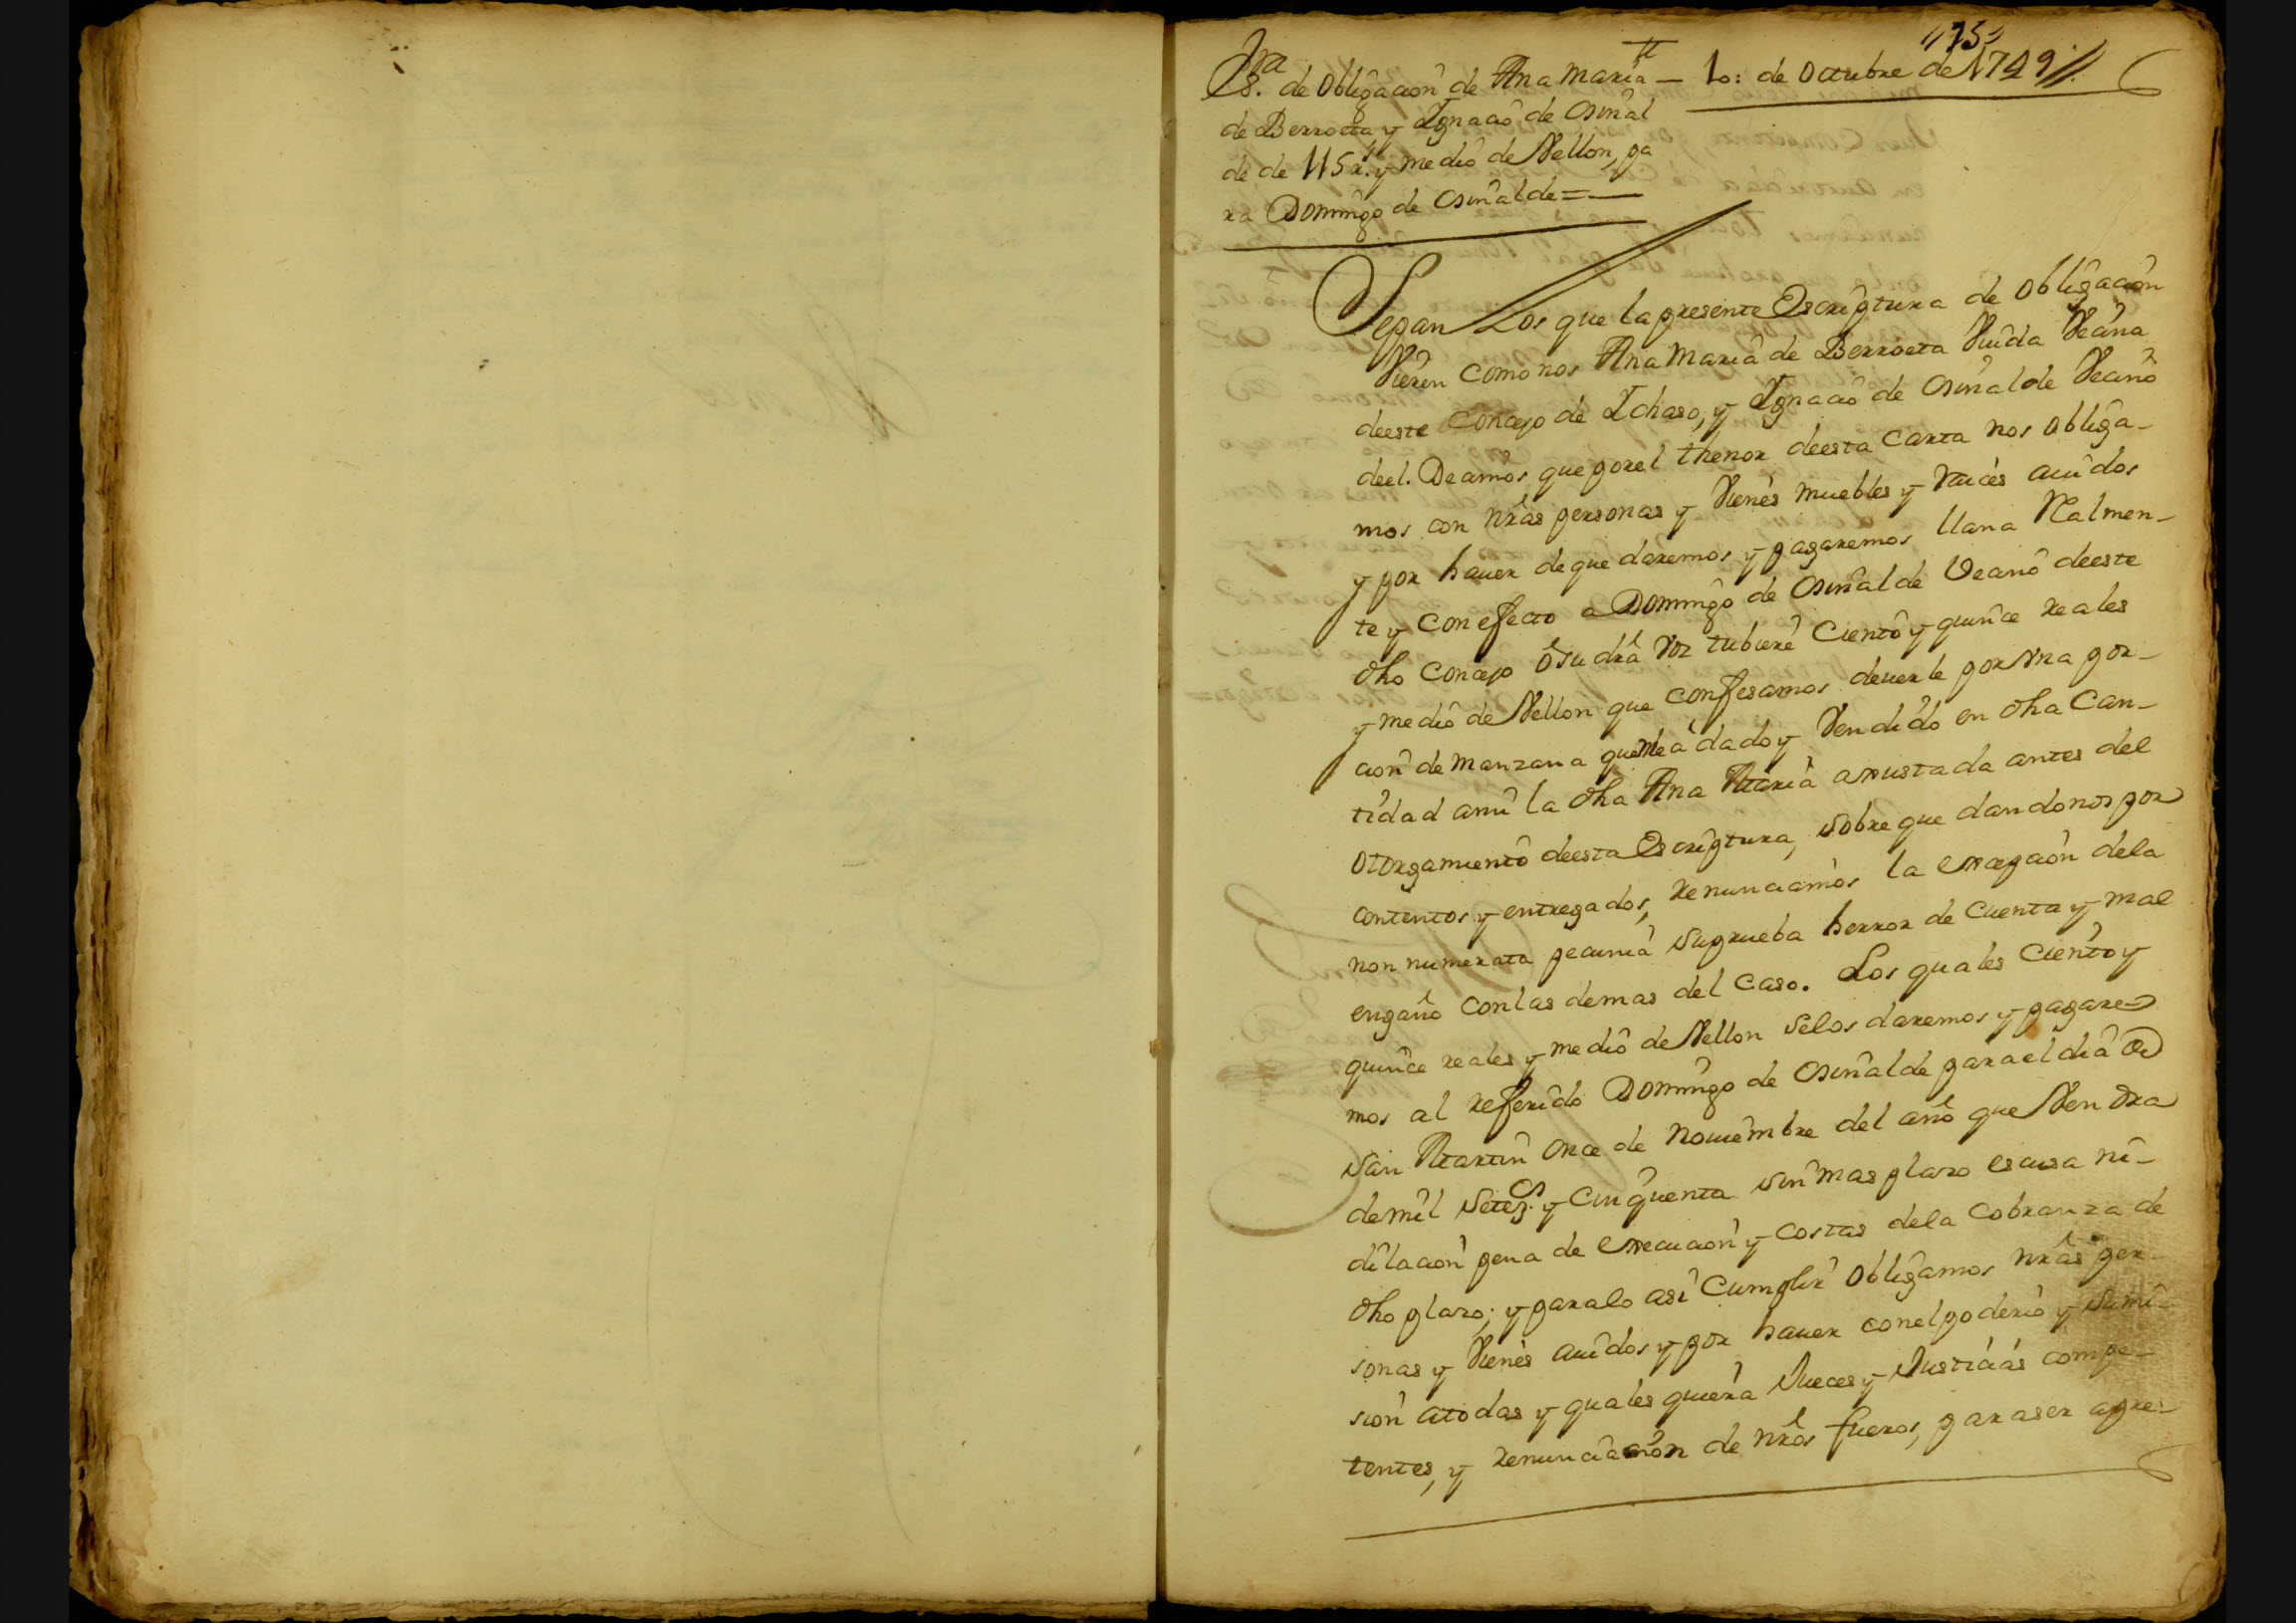 175
Es.ra de obligacion de Ana Maria — 1o: de Octubre de 1749 //.
de Berroeta, y Ygnacio de Osinal
de de 115 r.s y medio de Vellon, pa
ra Domingo de Osinalde = —
Sepan Los que la presente Escriptura de obligacion
Vieren como nos Ana Maria de Berroeta Viuda Vecina
deeste Concejo de Ychaso, y Ygnacio de Osinalde Vecino
deel. Decimos que por el thenor deesta Carta nos obliga-
mos con nras personas y Vienes muebles y raices avidos
y por haver de que daremos y pagaremos llana Realmen-
te y con efecto a Domingo de Osinalde Vecino deeste
dho Concejo o su dra voz tubiere Ciento y quince reales
y medio de Vellon que confesamos deverle por una por-
cion de Manzana que me à dado y Vendido en dha Can-
tidad a mi la dha Ana Maria axustada antes del
otorgamiento deesta Escriptura, sobre que dandonos por
contentos y entregados, renunciamos la excepcion dela
non numerata pecunia su prueba herror de Cuenta y mal
engaño con las demas del Caso. Los quales Ciento y
quince reales y medio de Vellon selos daremos y pagare-
mos al referido Domingo de Osinalde para el dia de
San Martin Once de Noviembre del año que Vendra
de mil Setez.os y Cinquenta sin mas plazo escusa ni-
dilacion pena de execucion y costas dela Cobranza de
dho plazo; y para lo asi Cumplir obligamos nras per-
sonas y Vienes avidos y por haver con el poderio y sumi-
sion a todas y quales quiera Jueces y Justicias compe-
tentes, y renunciacion de nros fueros, para ser apre-